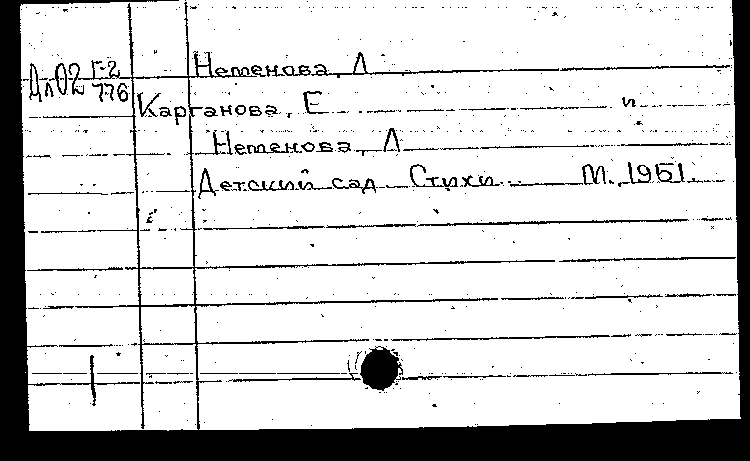 Нетенова, Л
Дл02 Г-2
776
Карганова, Е и
Нетенова, Л
Детский сад. Стихи. М., 1951.